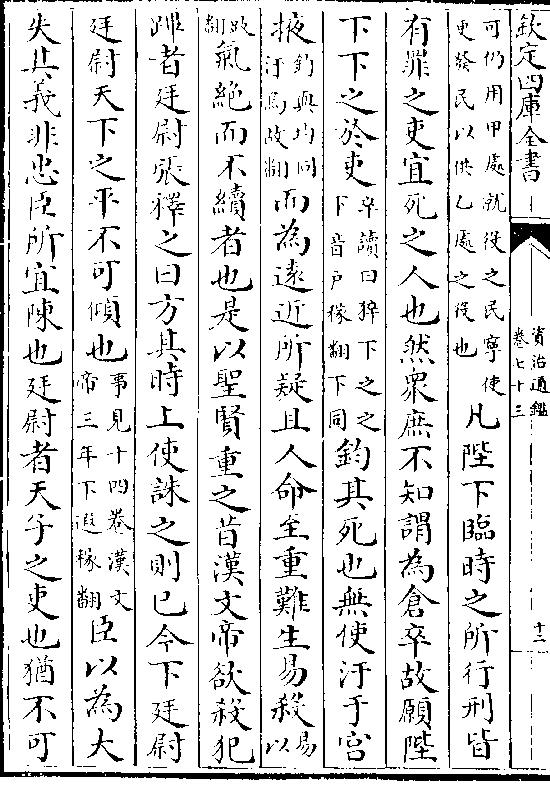 欽定四庫全書
資治通鑑
卷七十三
十二
可仍用甲處就役之民寧使
更發民以供乙處之役也
凡陛下臨時之所行刑皆
有罪之吏宜死之人也然衆庶不知謂為倉卒故願陛
下下之於吏
卒讀曰猝下之之
下音戸稼翻下同
鈞其死也無使汙于宮
掖
鈞與均同
汙烏故翻
而為遠近所疑且人命至重難生易殺
易以
豉翻
氣絶而不續者也是以聖賢重之昔漢文帝欲殺犯
蹕者廷尉張釋之曰方其時上使誅之則已今下廷尉
廷尉天下之平不可傾也
事見十四卷漢文
帝三年下遐稼翻
臣以為大
失其義非忠臣所宜陳也廷尉者天子之吏也猶不可